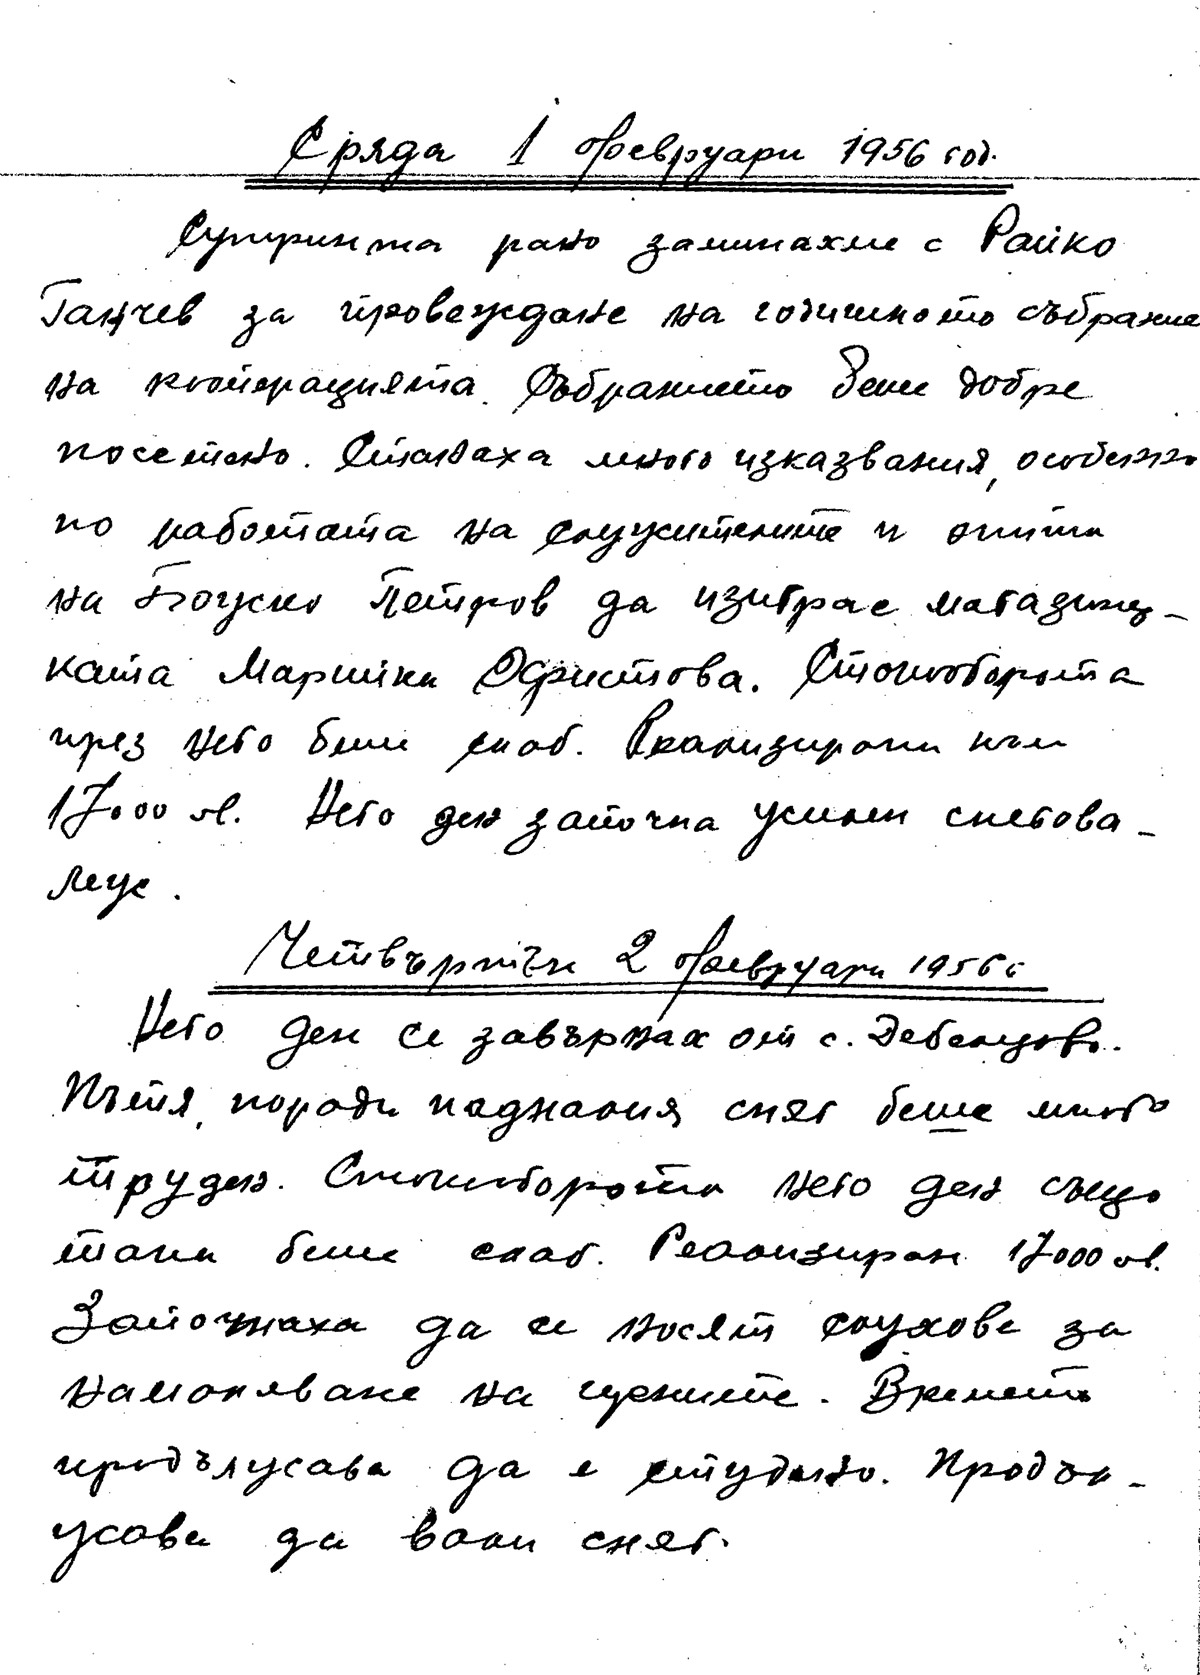 Сряда 1 февруари 1956 год.
Сутринта рано заминахме с Райко
Ганчев за провеждане на годишното събрание
на кооперацията. Събранието беше добре
посетено. Станаха много изказвания, особенно
по работата на служителите и опита
на Божко Петров да изиграе магазинер-
ката Марийка Христова. Стокооборота
през него беше слаб. Реализирани към
17000 лв. Него ден започна усилен снегова-
леж.
Четвъртък 2 февруари 1956 г
Него ден се завърнах от с. Дебенцово.
Пътя, поради падналия сняг беше много
труден. Стокооборота него ден също
така беше слаб. Реализиран 17000 лв.
Започнаха да се носят слухове за
намоляване на цените. Времето
продължава да е студено. Продъл-
жава да вали сняг.